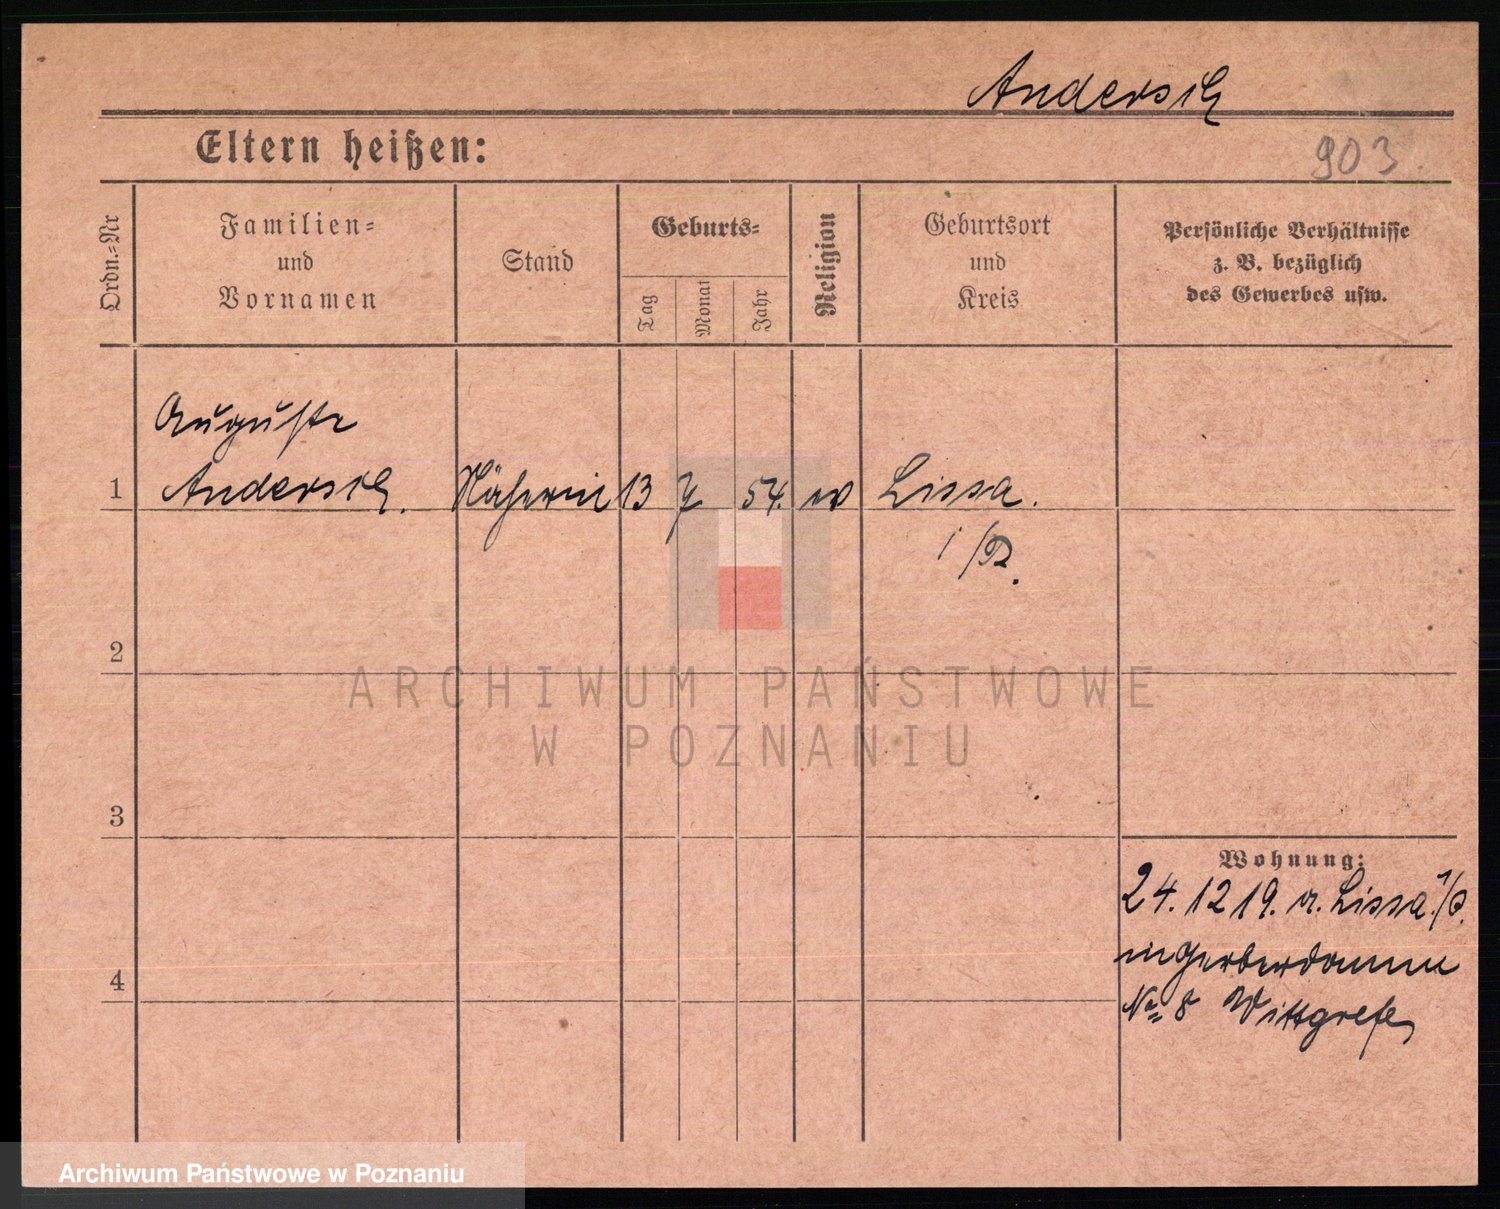 Andersch
Eltern heißen:
903
Ordn.-Nr
Familien-
und
Vornamen
Stand
Geburts-
Tag
Monat
Jahr
Religion
Geburtsort
und
Kreis
Persönliche Verhältnisse
z. B. bezüglich
des Gewerbes usw.
Auguste
1 Andersch. Näherin 13 7 54. ev Lissa.
i/P.
2
ARCHIWUM PAŃSTWOWE
W POZNANIU
3
Wohnung:
24.12 19. a. Lissa i/P.
in Gerberdamm
No 8 Wittgrefe,
4
Archiwum Państwowe w Poznaniu